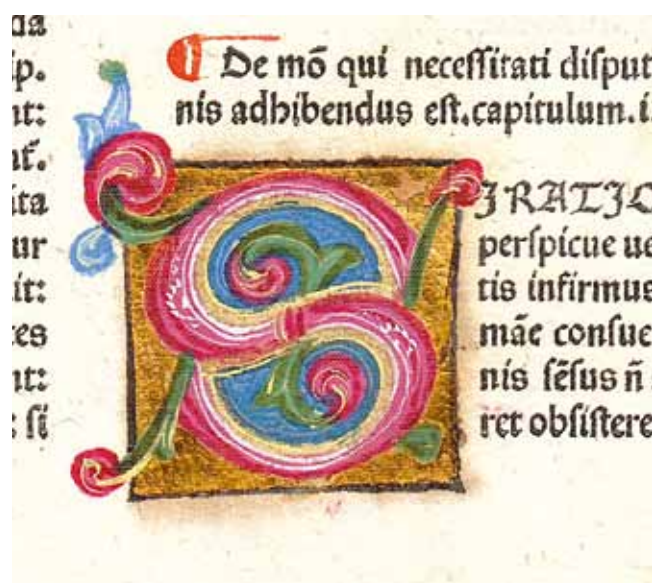 ua
ip.
nt:
nt̄.
ita
ur
it:
tes
nt:
: si̅
De mō qui neceſſitati diſput
nis adhibendus eſt. capitulum. i.
S IRATIO
perſpicue ue
tis infirmus
māe conſue
nis ſēſus n̄
ret obſiſtere